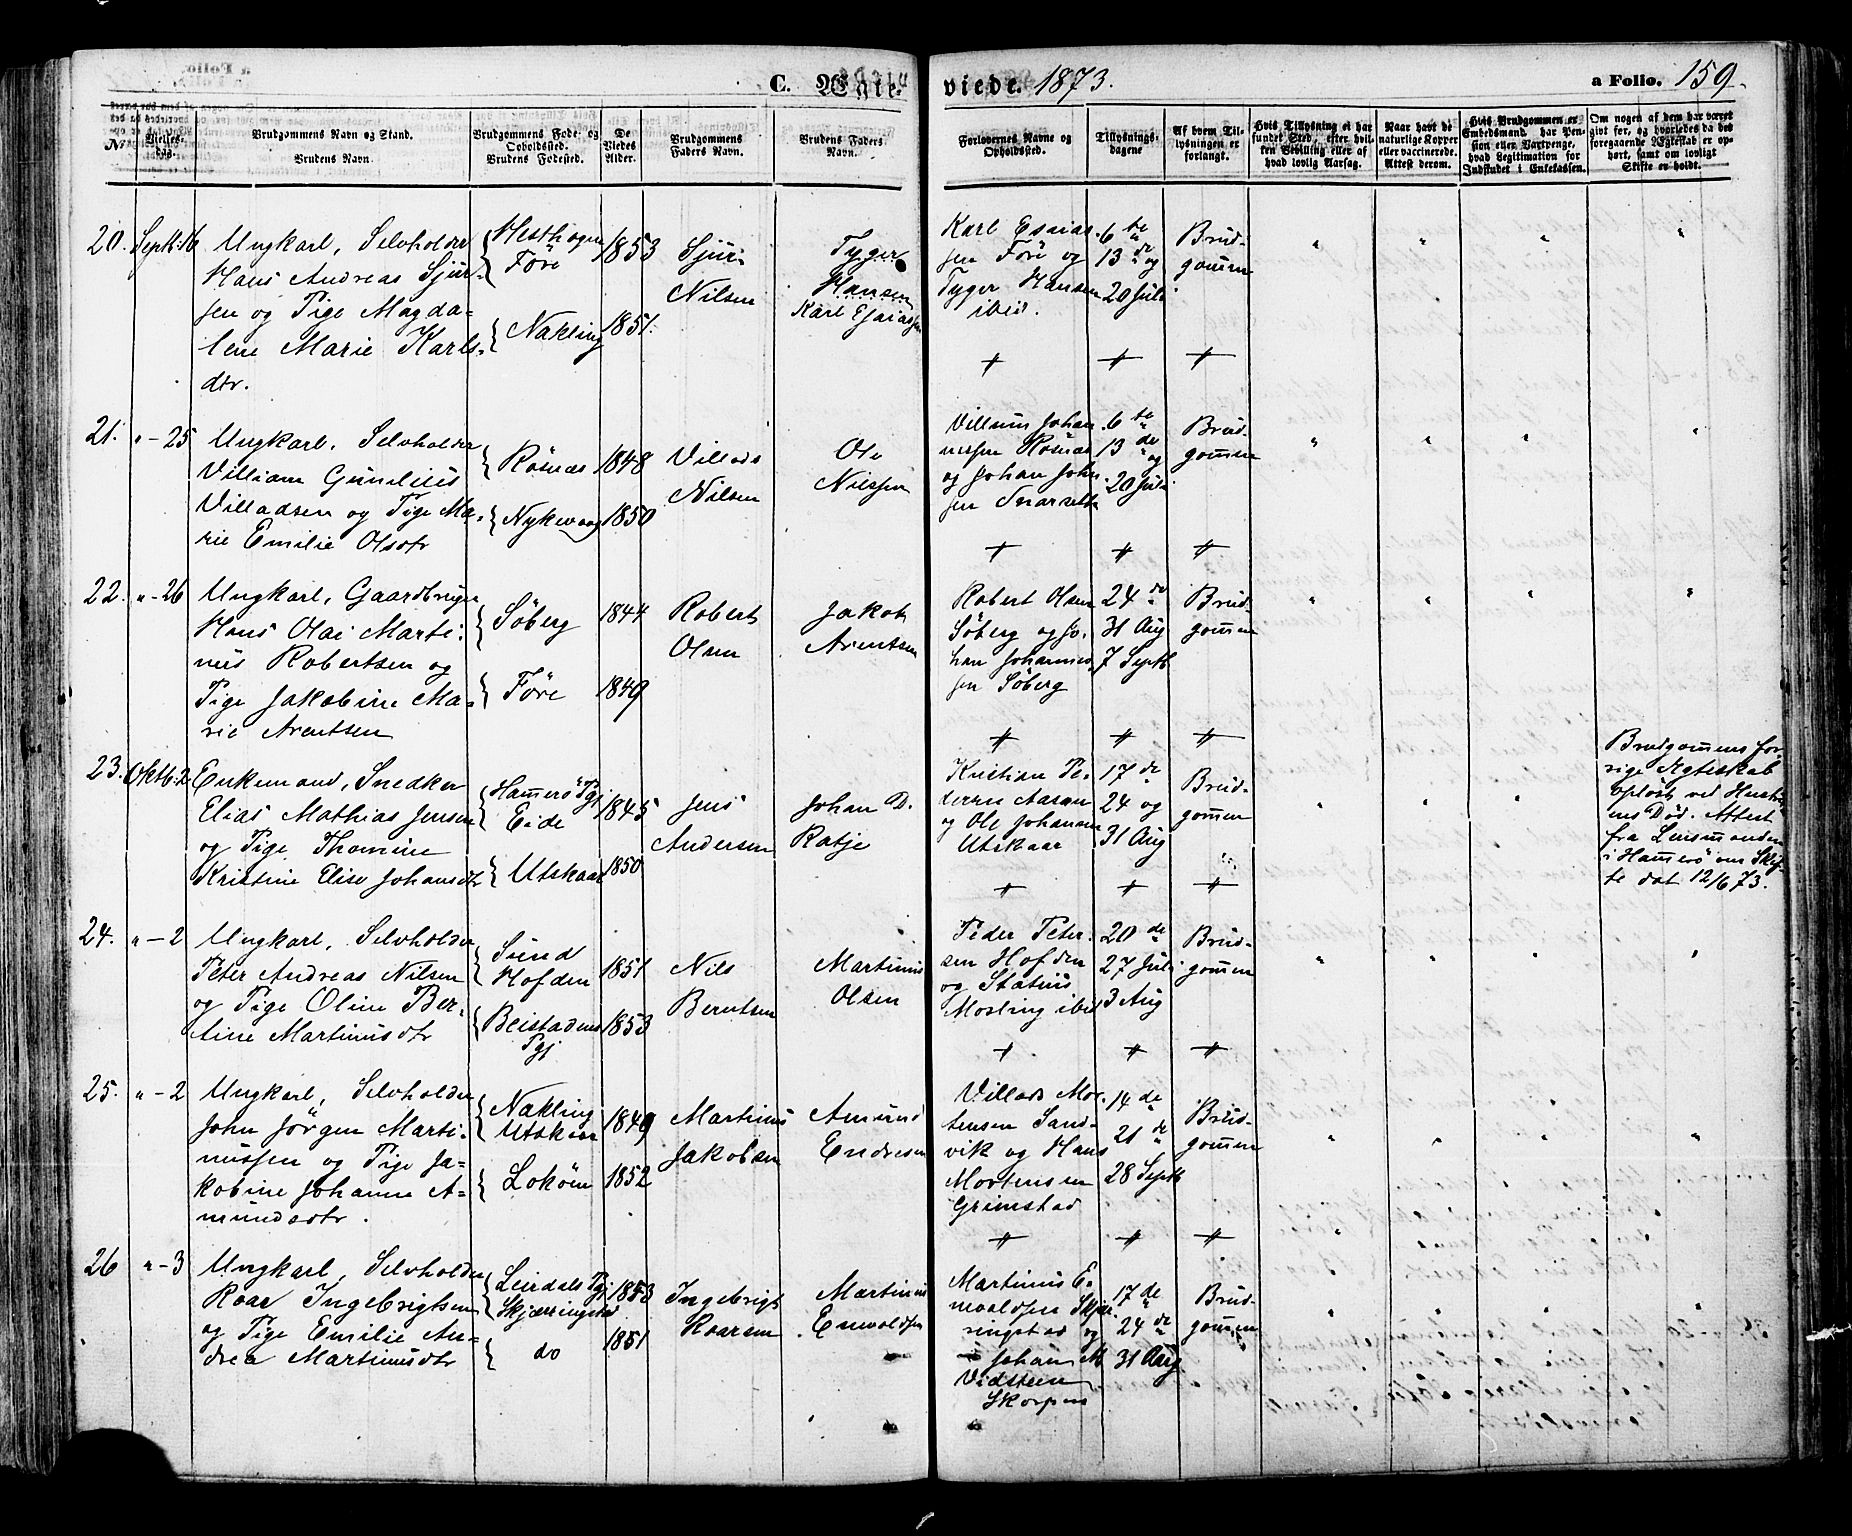 C. Ægte-
viede. 1873.
a Folio. 159.
No.
Vielses-
dag.
Brudgommens Navn og Stand.
Brudens Navn.
Brudgommens Føde- og
Opholdssted.
Brudens Fødested.
De
Viedes
Alder.
Brudgommens
Faders Navn.
Brudens Faders
Navn.
Forlovernes Navne og
Opholdssted.
Tillysnings-
dagene
Af hvem Til-
lysningen er
forlangt.
Hvis Tillysning ei har
fundet Sted, efter hvil-
ken Bevilling eller af
hvad lovlig Aarsag.
Naar havt de
naturlige Kopper
eller vaccinerede.
Attest derom.
Hvis Brudgommen er
Embedsmand, har Pen-
sion eller Vartpenge,
hvad Legitimation for
Indskudet i Enkekassen.
Om nogen af dem har været
givt før, og hvorledes da det
foregaaende Ægteskab er op-
hørt, samt om lovligt
Skifte er holdt.
20. Septb: 16
Ungkarl, Selvholder
Hans Andreas Sjur-
sen og Pige Magda-
lene Marie Karls-
dtr.
Hesthagen
Före
Nakling
1853
1851.
Sjur
Nilsen
Tyger
Hansen
Karl Esaiassen
Karl Esaias-
sen Före og
Tyger Hansen
ibid.
6te
13de og
20 Juli
Brud-
gommen
21. " - 25
Ungkarl, Selvholder
Villiam Gunelius
Villadsen og Pige Ma-
rie Emilie Olsdtr
Rösnæs
Nykvaag
1848
1850
Villads
Nilsen
Ole
Nilssen
Villum Johan-
nessen Rösnæs
og Johan John-
sen Snarset
6te
13de og
20 Juli
Brud-
gommen
22. " - 26
Ungkarl, Gaardbruger
Hans Olai Marti-
nus Robertsen og
Pige Jakobine Ma-
rie Arentsen
Söberg
Före
1844
1849
Robert
Olsen
Jakob
Arentsen
Robert Olsen
Söberg og Jo-
han Johannes-
sen Söberg
24de
31 Aug
7 Septb
Brud-
gommen
23. Oktb: 2
Enkemand, Snedker
Elias Mathias Jensen
og Pige Thomine
Kristine Elise Johansdtr
Hamerö Pgj
Eide
Utskaar
1845
1850
Jens
Andersen
Johan D.
Ratje
Kristian Pe-
dersen Aasan
og Ole Johansen
Utskaar
17de
24 og
31 Aug
Brud-
gommen
Brudgommens for-
rige Ægteskab
oplöst ved Hustru-
ens Död. Attest
fra Lensmanden
i Hamerö om Skif-
te dat 12/6 73.
24. " - 2
Ungkarl, Selvholder
Peter Andreas Nilsen
og Pige Oline Ber-
tine Martinusdtr
Sund
Hofden
Beistadens
Pgj
1851
1853
Nils
Berntsen
Martinus
Olsen
Peder Peter-
sen Hofden
og Statius
Mosling ibid
20de
27 Juli
3 Aug
Brud-
gommen
25. " - 2
Ungkarl, Selvholder
John Jörgen Marti-
nussen og Pige Ja-
kobine Johanne A-
mundsdtr.
Nakling
Utskaar
Loköen
1849
1852
Martinus
Jakobsen
Amund
Endresen
Villads Mor-
tensen Sand-
vik og Hans
Mortensen
Grimstad
14de
21de
28 Septb
Brud-
gommen
26 " - 3
Ungkarl, Selvholder
Roar Ingebrigtsen
og Pige Emilie An-
drea Martinusdtr
Leirdals Pgj.
Skjærringstad
do
1853
1851
Ingebrigt
Roarsen
Martinus
Envoldsen
Martinus E-
nvoldsen Skjær-
ringstad og
Johan M
Vidsteen
Skorpen
17de
24de
31 Aug
Brud-
gommen